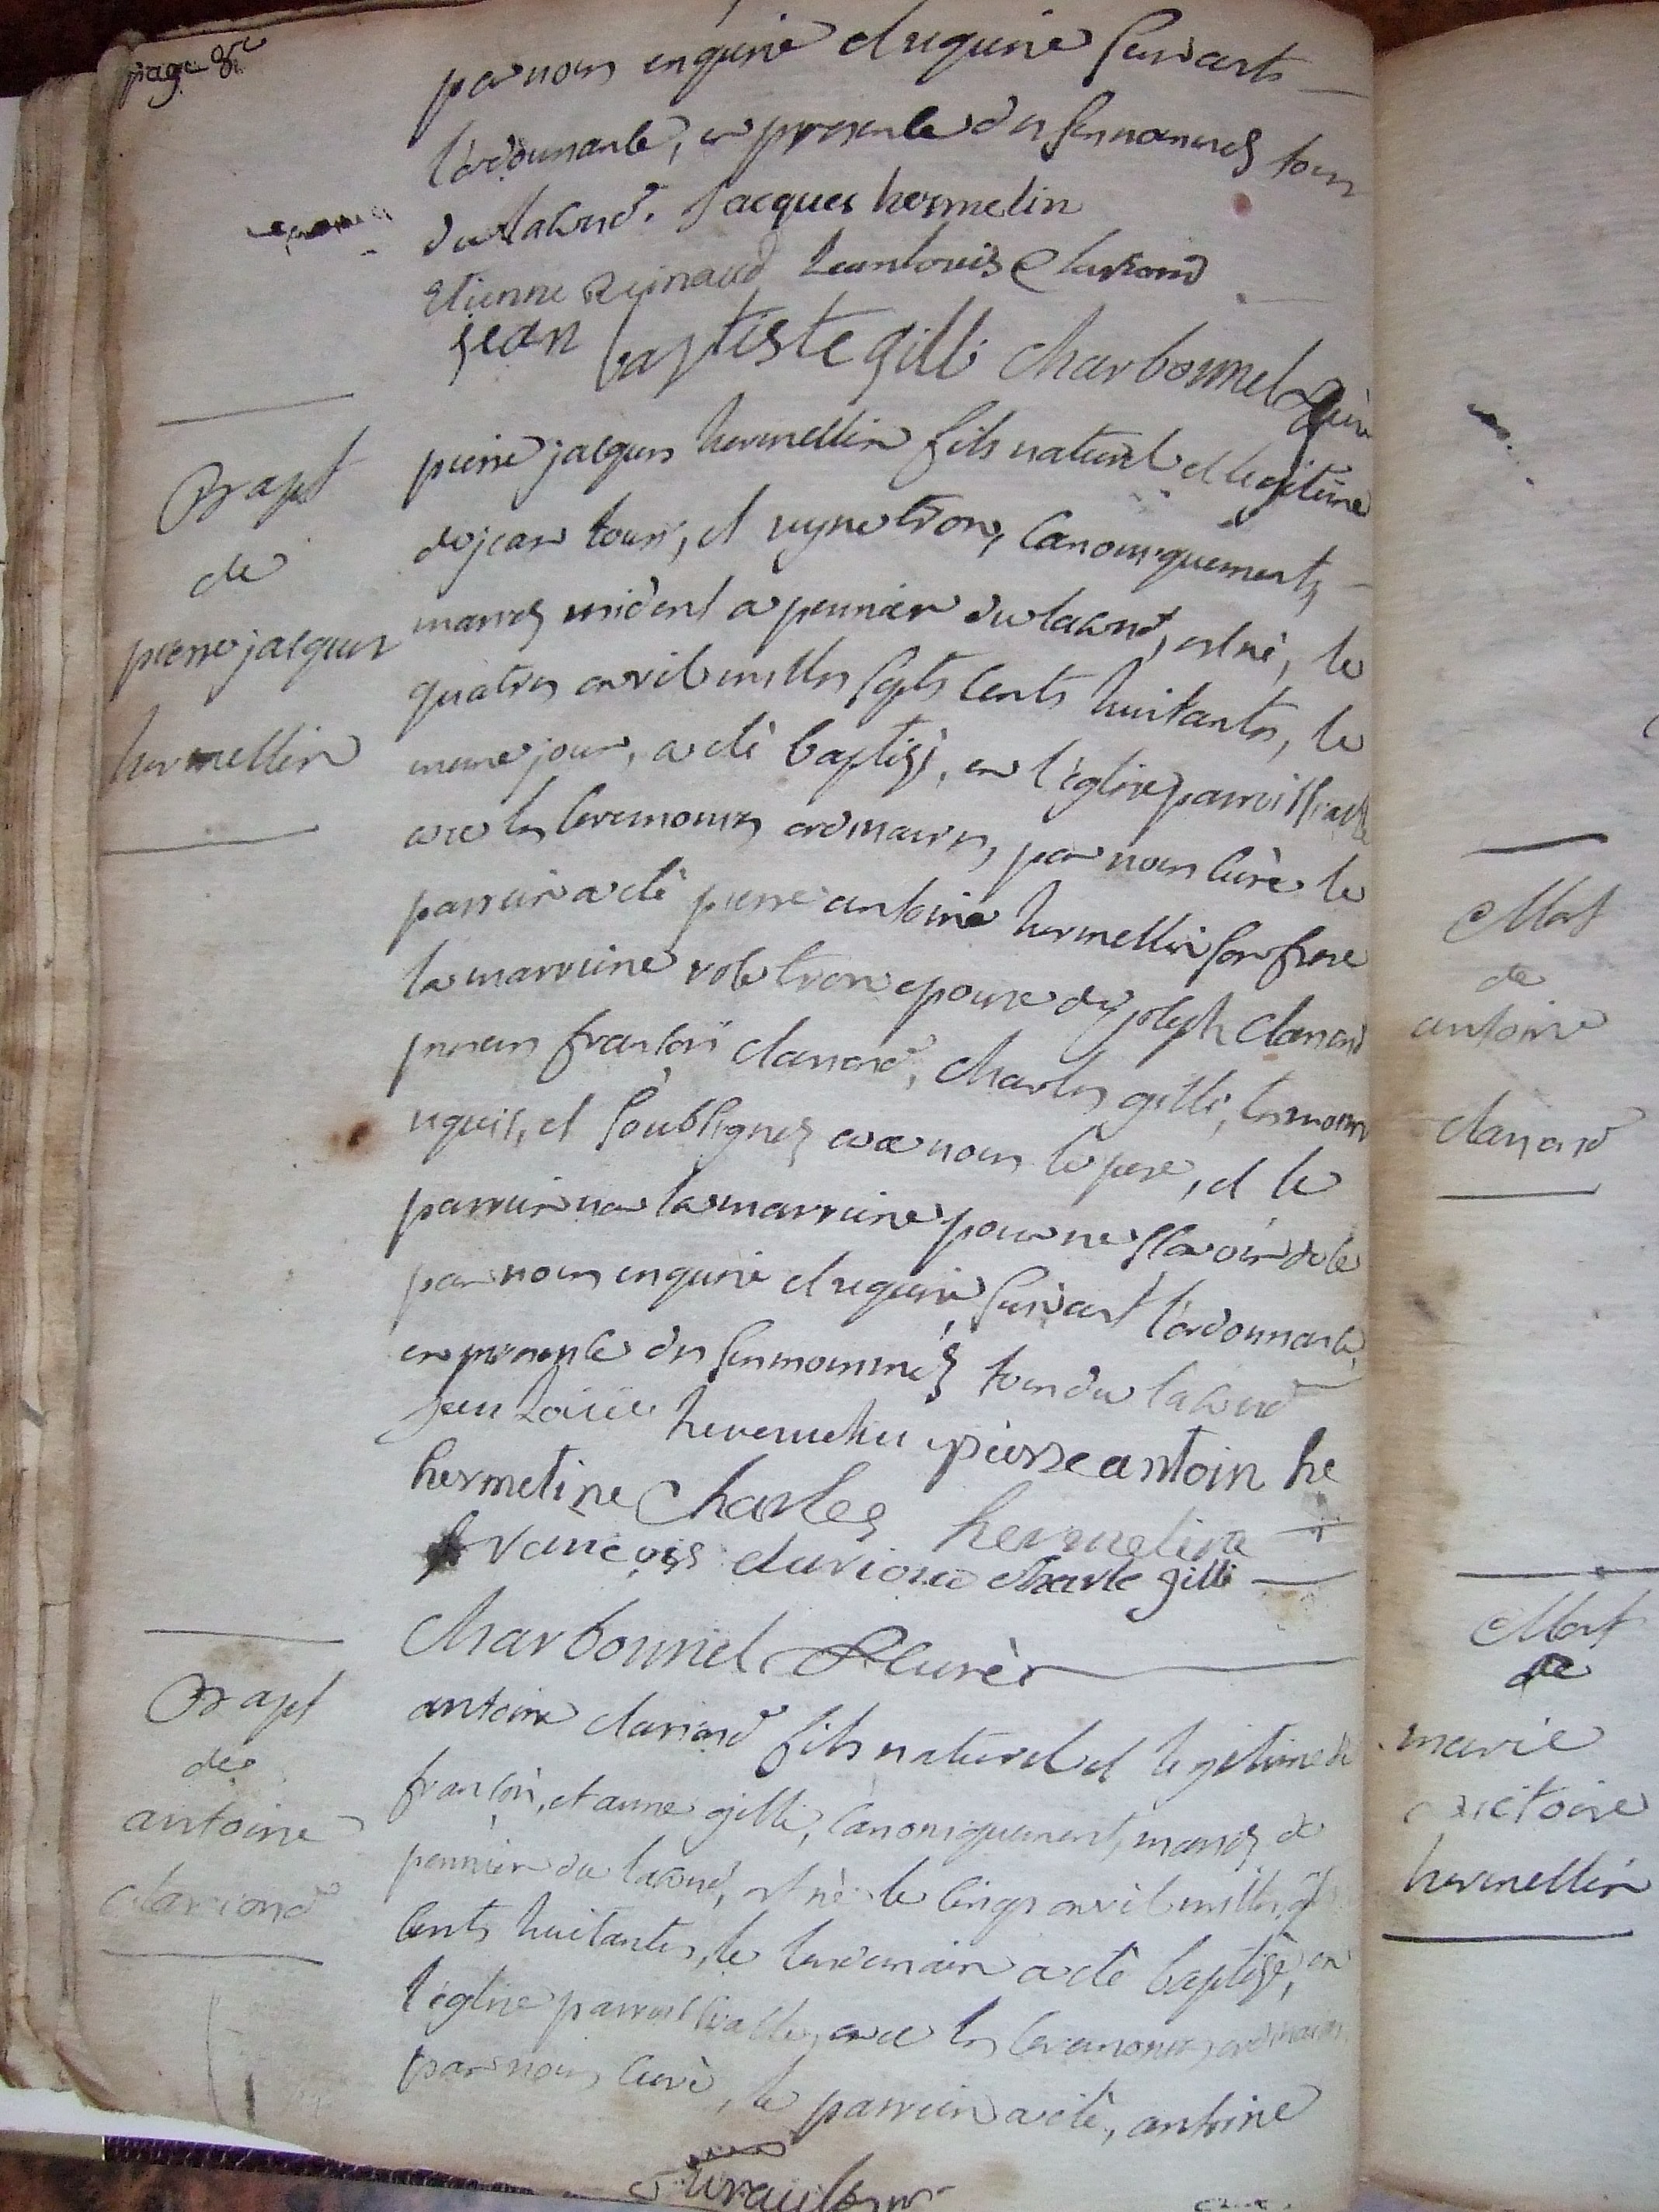 page 8e
par nous enquire et require suivants
l'ordonnance, en presence des sennommés tous
du lavond. Jacques hermelin
Etienne Reinaud Jean louis Clariond
jean baptiste gilli Charbonnel Curé
Bapt
de
pierre jacques
hermellin
pierre jacques hermellin fils naturel et legitime
de jean louis, et reyne tron, canoniquements
mariés resident a pennier du lavond, est né, le
quatres avril milles septs cents huitantes, le
meme jour, a eté baptisé, en l'eglise parroissialle
avec les ceremonies ordinaires, par nous curé le
parrein a eté pierre antoine hermellin son frere
la marreine tron epouse de joseph clariond
presens françois clariond, charles gilli, temoins
requis, et soubsignés avec nous le pere, et le
parrein non la marreine pour ne sçavoir de ce
par nous enquire et require suivant l'ordonnance,
en presence des sennommés tous du lavond
jean louis hermelin pierre antoin he
hermeline Charles hermeline
francois clariond Charle gilli
Charbonnel Curé
Bapt
de
antoine
clariond
antoine clariond fils naturel et legitime de
françois, et anne gilli, canoniquement, mariés de
pennier du lavond, est né le cinqs avril milles 7
cents huitantes, le lendemain a eté baptisé, en
l'eglise parroissialle, avec les ceremonies ordinaires
par nous curé, le parrein a eté, antoine
Mort
de
antoine
clariond
Mort
de
marie
victoire
hermellin